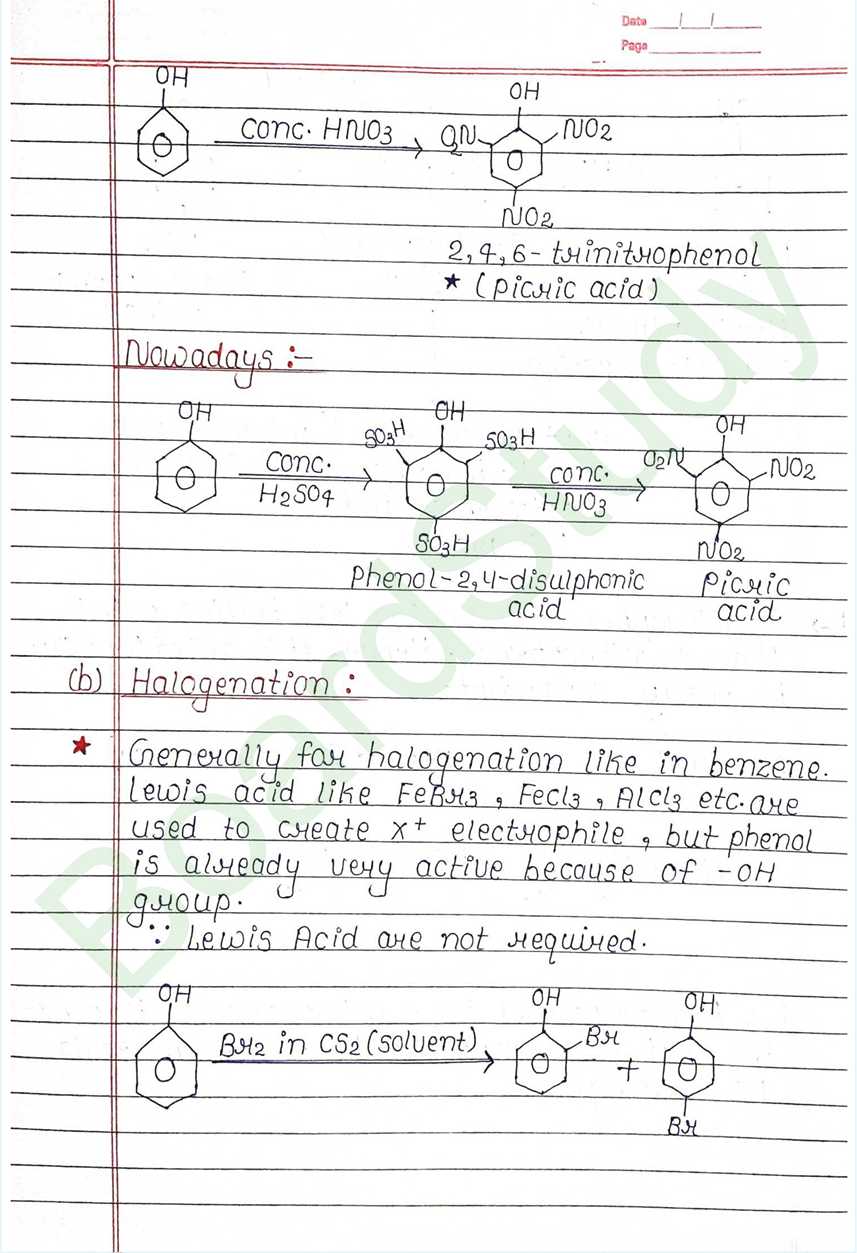 Date
Page
OH
OH
conc. HNO3
O2N
NO2
NO2
2,4,6-trinitrophenol
★ (picric acid)
Nowadays :-
OH
OH
OH
SO3H
SO3H
O2N
NO2
conc.
H2SO4
conc.
HNO3
SO3H
NO2
Phenol-2,4-disulphonic
acid
Picric
acid
(b) Halogenation :
★ Generally for halogenation like in benzene.
Lewis acid like FeBr3, FeCl3, AlCl3 etc. are
used to create X+ electrophile, but phenol
is already very active because of -OH
group.
∵ Lewis Acid are not required.
OH
OH
OH
Br2 in CS2 (solvent)
Br
+
Br
BoardStudy